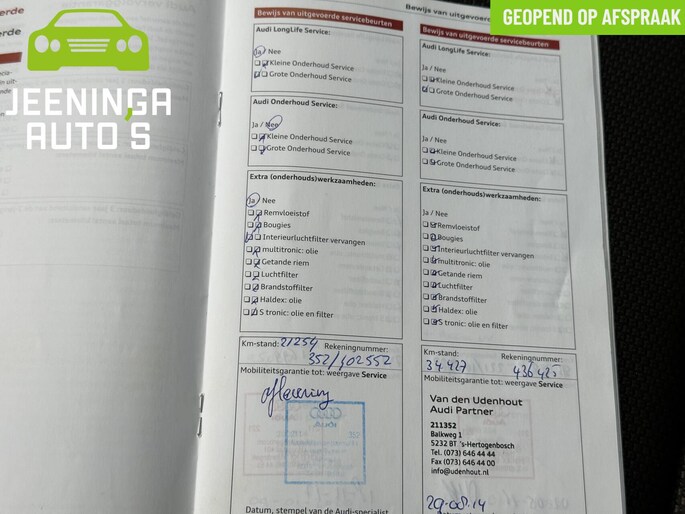 GEOPEND OP AFSPRAAK
JEENINGA
AUTO'S
Bewijs van uitgevoerde servicebeurten
Audi LongLife Service:
Ja / Nee
Kleine Onderhoud Service
Grote Onderhoud Service
Audi Onderhoud Service:
Ja / Nee
Kleine Onderhoud Service
Grote Onderhoud Service
Extra (onderhouds)werkzaamheden:
Ja / Nee
Remvloeistof
Bougies
Interieurluchtfilter vervangen
multitronic: olie
Getande riem
Luchtfilter
Brandstoffilter
Haldex: olie
S tronic: olie en filter
Km-stand: 21254 Rekeningnummer:
352/102552
Mobiliteitsgarantie tot: weergave Service
aflevering
Datum, stempel van de Audi-specialist
Bewijs van uitgevoer
Bewijs van uitgevoerde servicebeurten
Audi LongLife Service:
Ja / Nee
Kleine Onderhoud Service
Grote Onderhoud Service
Audi Onderhoud Service:
Ja / Nee
Kleine Onderhoud Service
Grote Onderhoud Service
Extra (onderhouds)werkzaamheden:
Ja / Nee
Remvloeistof
Bougies
Interieurluchtfilter vervangen
multitronic: olie
Getande riem
Luchtfilter
Brandstoffilter
Haldex: olie
S tronic: olie en filter
Km-stand: Rekeningnummer:
34.427 436425
Mobiliteitsgarantie tot: weergave Service
Van den Udenhout
Audi Partner
211352
Balkweg 1
5232 BT 's-Hertogenbosch
Tel. (073) 646 44 44
Fax (073) 646 44 00
info@udenhout.nl
29-08-14